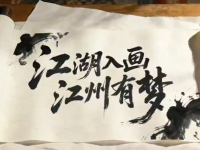 江湖入画
江州有梦